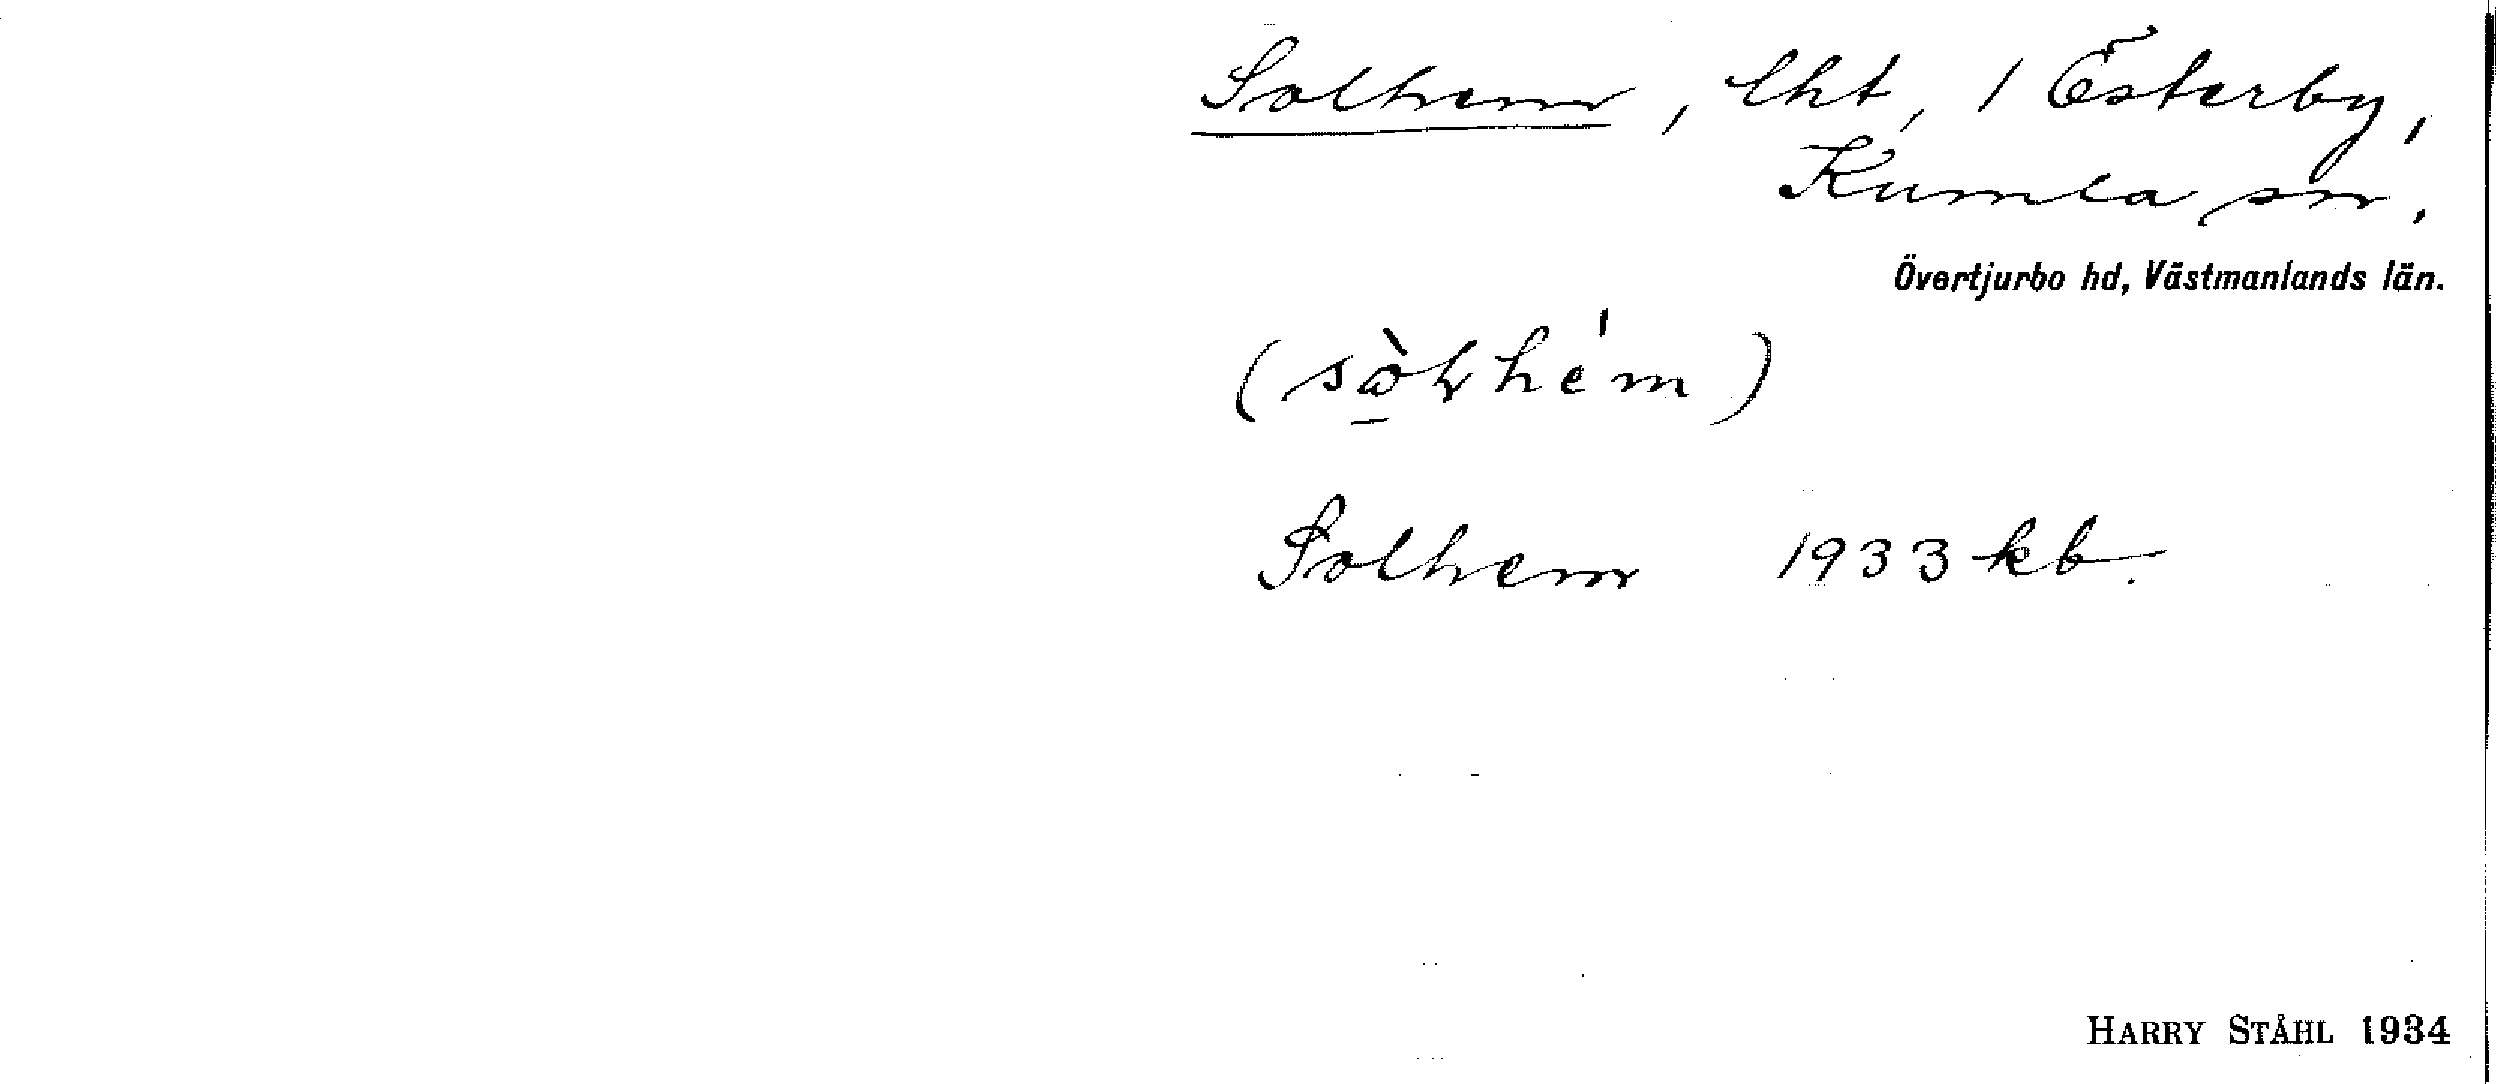 Solhem, lht, 1 Österby,
Kumla sn.
Övertjurbo hd, Västmanlands län.
Solhem 1933 kb.
HARRY STÅHL 1934